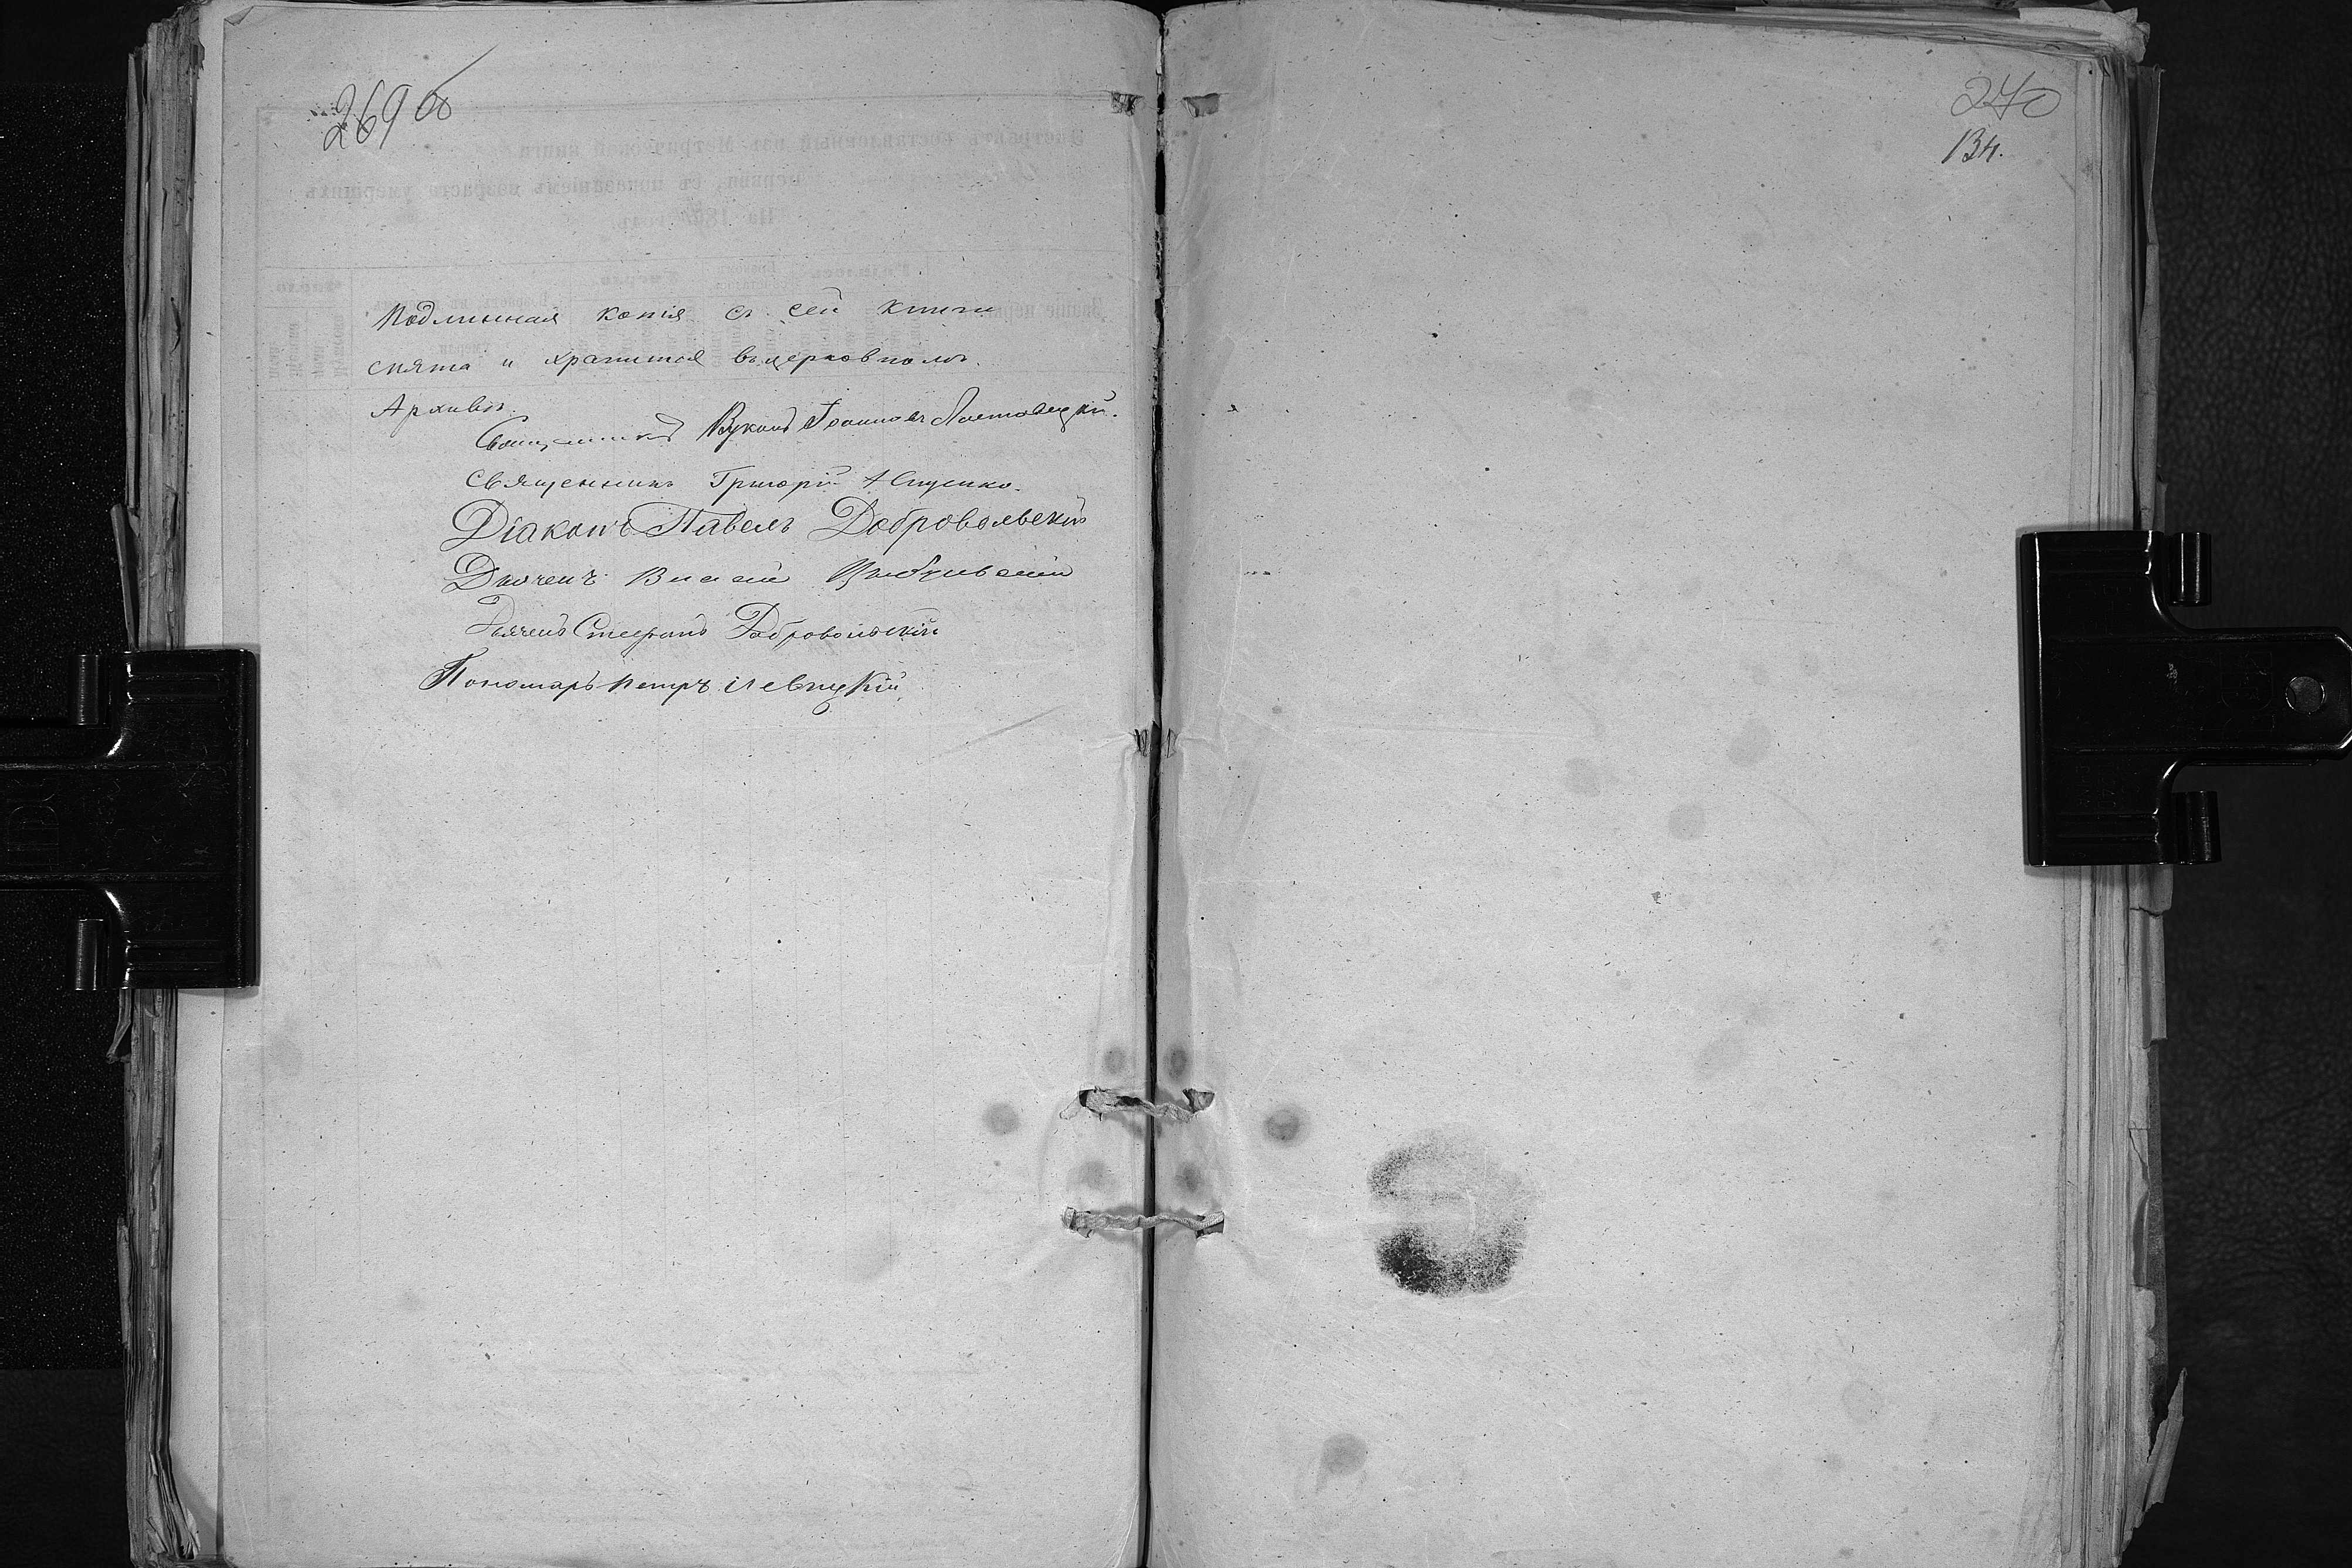 269 об
Подлинная копія съ сей книги
снята и хранится въ церковномъ
Архивѣ.
Священникъ Вуколъ Іоанновъ
Священникъ Григорій
Діаконъ Павелъ Добровольскій
Дьячекъ
Дьячекъ Стефанъ Добровольскій
Пономарь Петръ Левицкій
270
134.